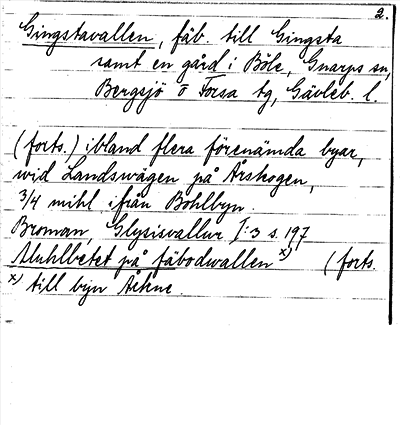 2.
Gingstavallen, fäb. till Gingsta
samt en gård i Böle, Gnarps sn,
Bergsjö o Forsa tg, Gävleb. l.
(forts.) ibland flera förenämda byar,
wid Landswägen på Årskogen,
3/4 mihl ifrån Bohlbyn.
Broman, Glysisvallur I:3 s. 197
Muhlbetet på fäbodwallen x) (forts.
x) till byn Åkne.